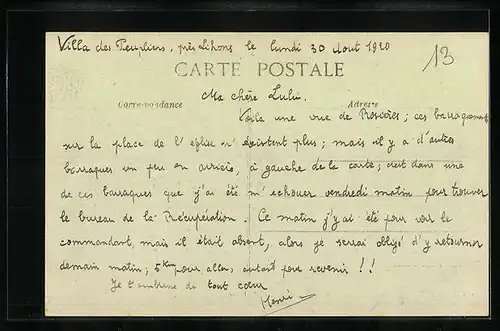 Villa des Peupliers, près Lihons le lundi 30 Aout 1920
13
CARTE POSTALE
Ma chère Lulu.
Correspondance
Adresse
Voila une vue de Rosières; ces barraquements
sur la place de l'église n'existent plus; mais il y a d'autres
barraques un peu en arrière, à gauche de la carte; c'est dans une
de ces barraques que j'ai été m'échouer vendredi matin pour trouver
le bureau de la Récupération. Ce matin j'y ai été pour voir le
commandant, mais il était absent, alors je serai obligé d'y retourner
demain matin; 5 km pour aller, autant pour revenir !!
Je t'embrasse de tout cœur
Henri